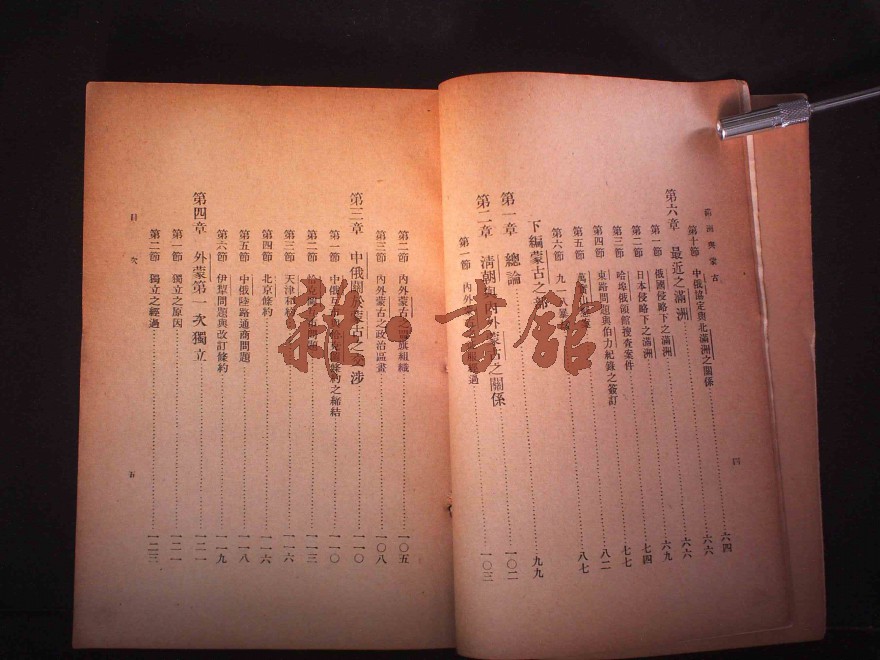 滿洲與蒙古
四
第十節 中俄協定與北滿洲之關係……六四
第六章 最近之滿洲……六六
第一節 俄國侵略下之滿洲……六六
第二節 日本侵略下之滿洲……六九
第三節 哈埠俄領館搜查案件……七四
第四節 東路問題與伯力紀錄之簽訂……七七
第五節……八二
第六節 九一八……八七
下編 蒙古之部
第一章 總論……九九
第二章 清朝與內外蒙古之關係……一〇二
第一節 內外蒙古之經過……一〇三
第二節 內外蒙古之盟旗組織……一〇五
第三節 內外蒙古之政治區畫……一〇八
第三章 中俄關於蒙古之交涉……一一〇
第一節 中俄條約之締結……一一〇
第二節 恰克圖問題……一一三
第三節 天津和約……一一六
第四節 北京條約……一一六
第五節 中俄陸路通商問題……一一八
第六節 伊犁問題與改訂條約……一一九
第四章 外蒙第一次獨立……一二一
第一節 獨立之原因……一二一
第二節 獨立之經過……一二三
目次
五
雜·書館